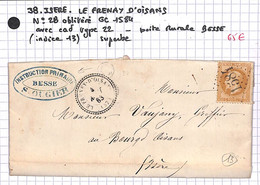 38. ISERE. LE FRENAY D'OISANS
N° 28 oblitéré GC 1584
avec cad type 22 - boite rurale BESSE
(indice 13) superbe 65€
INSTRUCTION PRIMAIRE
BESSE
St OUGIER
Monsieur
Monsieur Vaujany, Greffier
au Bourg d'Oisans
(Isère)
13